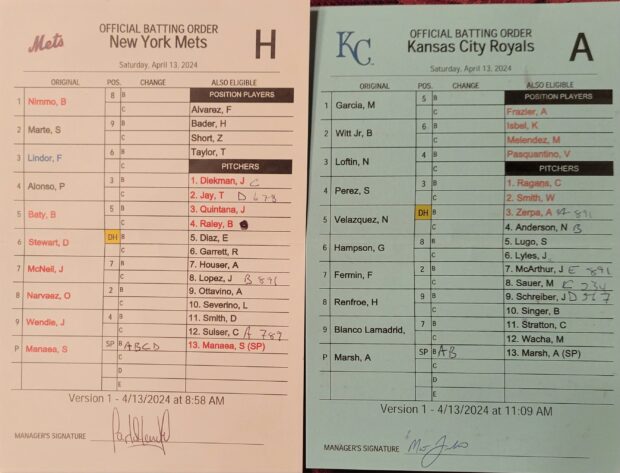 Mets
OFFICIAL BATTING ORDER
New York Mets
H
Saturday, April 13, 2024
ORIGINAL POS. CHANGE ALSO ELIGIBLE
POSITION PLAYERS
1 Nimmo, B 8 B
C Alvarez, F
2 Marte, S 9 B Bader, H
C Short, Z
3 Lindor, F 6 B Taylor, T
C PITCHERS
4 Alonso, P 3 B 1. Diekman, J C
C 2. Jay, T D 673
5 Baty, B 5 B 3. Quintana, J
C 4. Raley, B
6 Stewart, D DH B 5. Diaz, E
C 6. Garrett, R
7 McNeil, J 7 B 7. Houser, A
C 8. Lopez, J B 891
8 Narvaez, O 2 B 9. Ottavino, A
C 10. Severino, L
9 Wendle, J 4 B 11. Smith, D
C 12. Sulser, C A 789
P Manaea, S SP B ABCD 13. Manaea, S (SP)
C
D
E
Version 1 - 4/13/2024 at 8:58 AM
MANAGER'S SIGNATURE
KC
OFFICIAL BATTING ORDER
Kansas City Royals
A
Saturday, April 13, 2024
ORIGINAL POS. CHANGE ALSO ELIGIBLE
POSITION PLAYERS
1 Garcia, M 5 B
C Frazier, A
2 Witt Jr, B 6 B Isbel, K
C Melendez, M
3 Loftin, N 4 B Pasquantino, V
C PITCHERS
4 Perez, S 3 B 1. Ragans, C
C 2. Smith, W
5 Velazquez, N DH B 3. Zerpa, A 891
C 4. Anderson, N B
6 Hampson, G 8 B 5. Lugo, S
C 6. Lyles, J
7 Fermin, F 2 B 7. McArthur, J E 891
C 8. Sauer, M C 234
8 Renfroe, H 9 B 9. Schreiber, J D 567
C 10. Singer, B
9 Blanco Lamadrid, 7 B 11. Stratton, C
C 12. Wacha, M
P Marsh, A SP B AB 13. Marsh, A (SP)
C
D
E
Version 1 - 4/13/2024 at 11:09 AM
MANAGER'S SIGNATURE